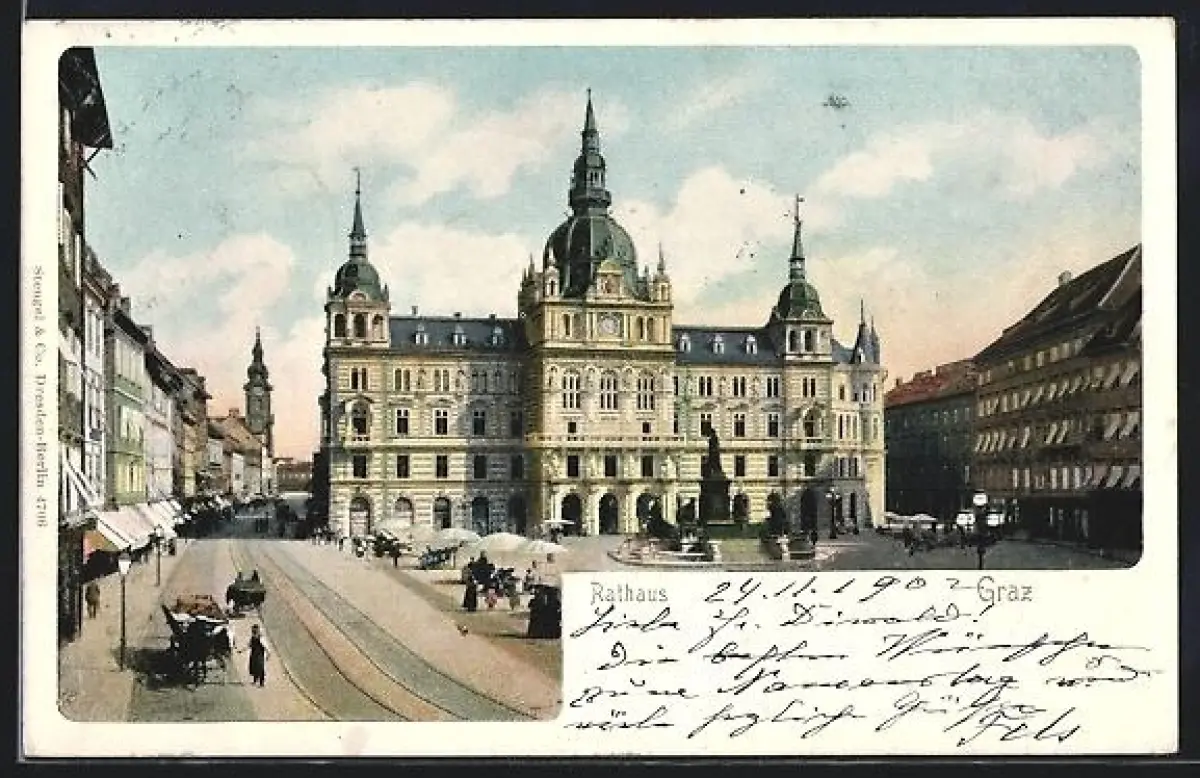 Stengel & Co. Dresden-Berlin 4706
Rathaus Graz
24.11.1902
Liebe Fr. Diwald!
Die besten Wünsche
zum Namenstag und
viele herzliche Grüße
Fels